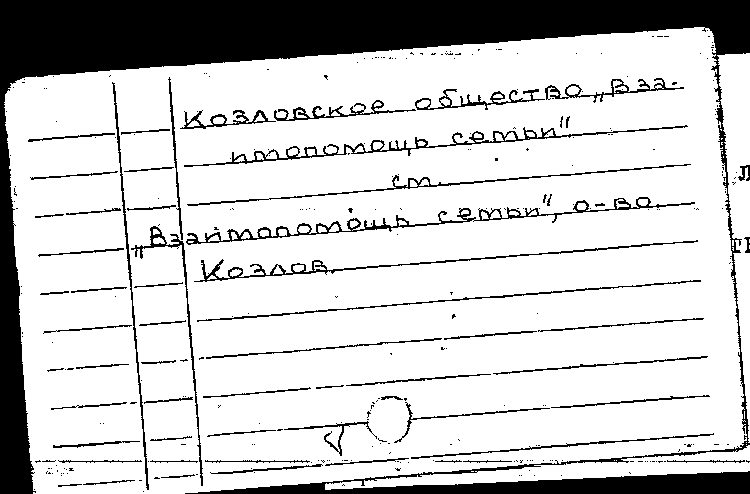 Козловское общество „Вза-
имопомощь семьи"
см.
„Взаимопомощь семьи", о-во.
Козлов.